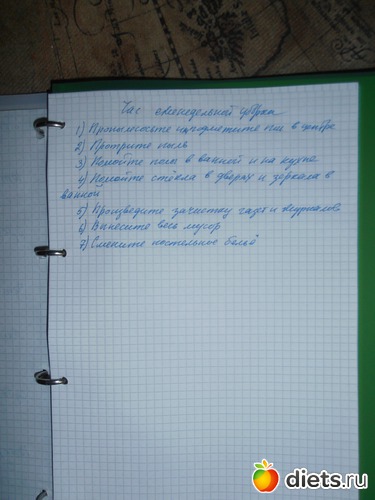 Час еженедельной уборки
1) Пропылесосьте и подметите пол в
2) Протрите пыль
3) Помойте полы в ванной и на кухне
4) Помойте стёкла в дверях и зеркала в
ванной
5) Произведите зачистку газет и журналов
6) Вынесите весь мусор
7) Смените постельное бельё
diets.ru